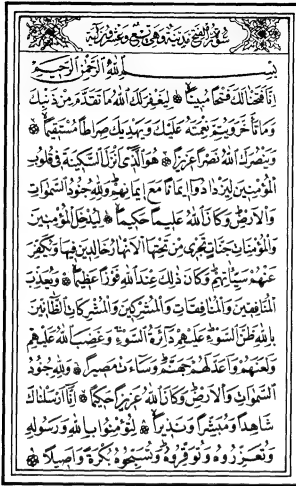 سورة الفتح مدنية وهى تسع وعشرون آية
بسم الله الرحمن الرحيم
انا فتحنا لك فتحا مبينا ليغفر لك الله ما تقدم من ذنبك
وما تأخر ويتم نعمته عليك ويهديك صراطا مستقيما
وينصرك الله نصرا عزيزا هو الذى انزل السكينة فى قلوب
المؤمنين ليزدادوا ايمانا مع ايمانهم ولله جنود السموات
والارض وكان الله عليما حكيما ليدخل المؤمنين
والمؤمنات جنات تجرى من تحتها الانهار خالدين فيها ويكفر
عنهم سيئاتهم وكان ذلك عند الله فوزا عظيما ويعذب
المنافقين والمنافقات والمشركين والمشركات الظانين
بالله ظن السوء عليهم دائرة السوء وغضب الله عليهم
ولعنهم واعد لهم جهنم وساءت مصيرا ولله جنود
السموات والارض وكان الله عزيزا حكيما انا ارسلناك
شاهدا ومبشرا ونذيرا لتؤمنوا بالله ورسوله
وتعزروه وتوقروه وتسبحوه بكرة واصيلا